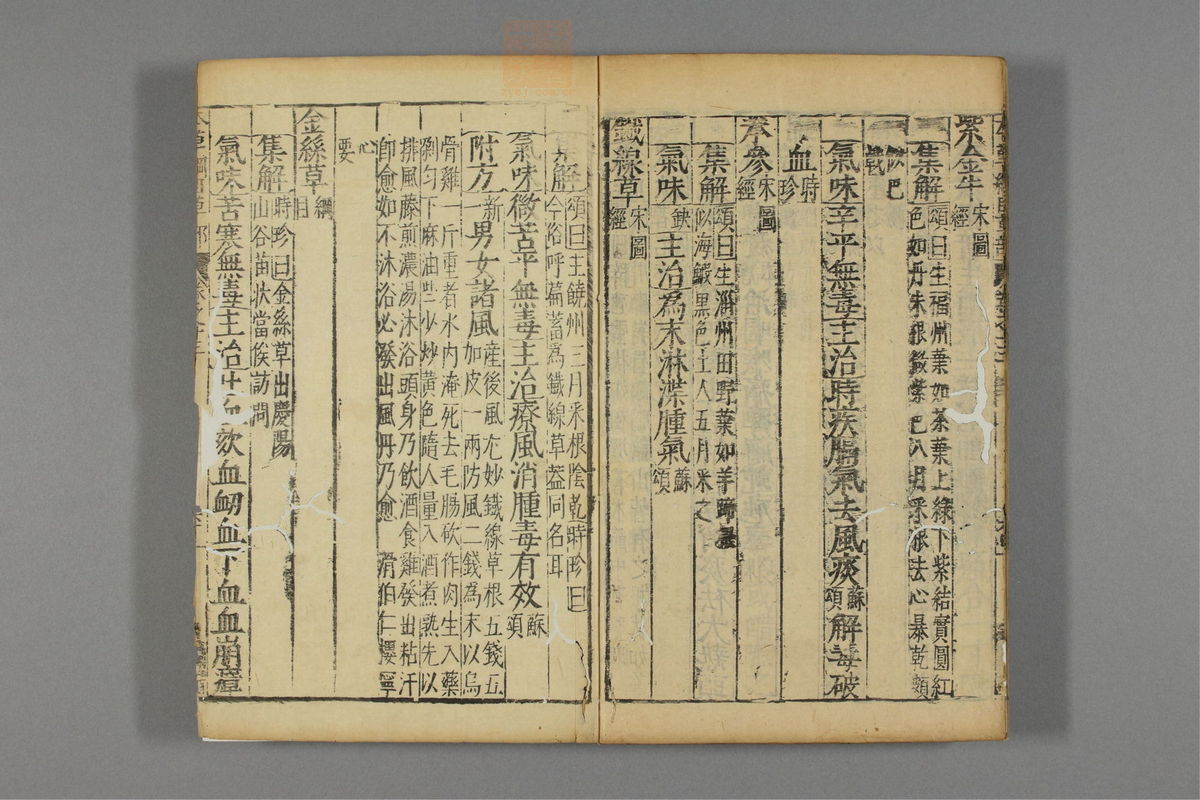 紫金牛宋圖經
集解頌曰生福州葉如茶葉上綠下紫結實圓紅
色如丹朱根微紫色八月采根去心暴乾頗
似巴戟
氣味辛平無毒主治時疾膈氣去風痰蘇頌解毒破
血時珍
拳參宋圖經
集解頌曰生淄州田野葉如羊蹄
似海蝦黑色土人五月采之
氣味缺主治為末淋渫腫氣蘇頌
鐵線草宋圖經
集解頌曰生饒州三月采根陰乾時珍曰
今俗呼萹蓄為鐵線草蓋同名耳
氣味微苦平無毒主治療風消腫毒有效蘇頌
附方新一男女諸風產後風尤妙鐵線草根五錢五
加皮一兩防風二錢為末以烏
骨雞一斤重者水內淹死去毛腸砍作肉生入藥
剁勻下麻油些少炒黃色隨人量入酒煮熟先以
排風藤煎濃湯沐浴頭身乃飲酒食雞發出粘汗
即愈如不沐浴必發出風丹乃愈 滑伯仁攖寧
心要
金絲草綱目
集解時珍曰金絲草出慶陽
山谷苗狀當俟訪問
氣味苦寒無毒主治吐血欬血衂血下血血崩瘴